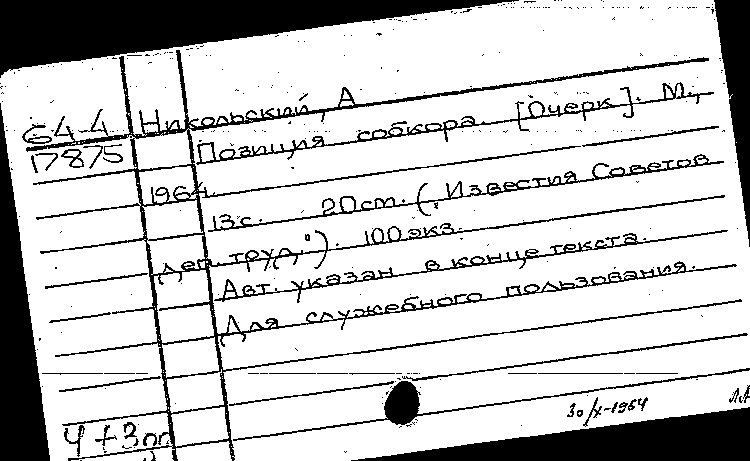 64-4 Никольский, А
17875 Позиция собкора. [Очерк]. М.,
1964.
13с. 20см. („Известия Советов
деп. труд."). 100 экз.
Авт. указан в конце текста.
Для служебного пользования.
30/X-1964
Ч+3оп